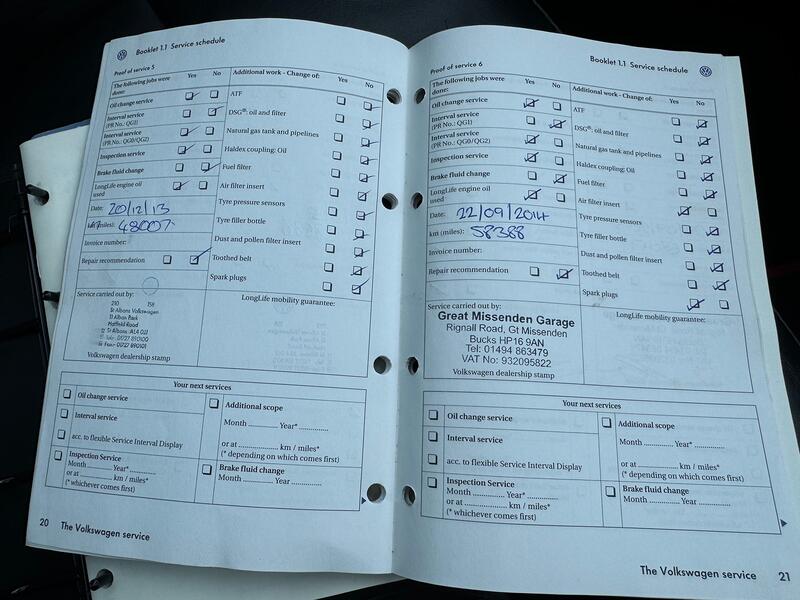 Booklet 1.1 Service schedule
Proof of service 5
The following jobs were done:
Yes No
Additional work - Change of:
Yes No
Oil change service
Interval service
(PR No.: QG1)
Interval service
(PR No.: QG0/QG2)
Inspection service
Brake fluid change
LongLife engine oil used
Date: 20/12/13
km (miles): 48007
Invoice number:
Repair recommendation
ATF
DSG®: oil and filter
Natural gas tank and pipelines
Haldex coupling: Oil
Fuel filter
Air filter insert
Tyre pressure sensors
Tyre filler bottle
Dust and pollen filter insert
Toothed belt
Spark plugs
Service carried out by:
210 158
St Albans Volkswagen
Alban Park
Hatfield Road
St Albans AL4 0JJ
Volkswagen dealership stamp
LongLife mobility guarantee:
Your next services
Oil change service
Interval service
acc. to flexible Service Interval Display
Inspection Service
Month ............ Year* ..............
or at ................. km / miles*
(* whichever comes first)
Additional scope
Month ............ Year* ..............
or at ................. km / miles*
(* depending on which comes first)
Brake fluid change
Month ............ Year ..............
20 The Volkswagen service
Booklet 1.1 Service schedule
Proof of service 6
The following jobs were done:
Yes No
Additional work - Change of:
Yes No
Oil change service
Interval service
(PR No.: QG1)
Interval service
(PR No.: QG0/QG2)
Inspection service
Brake fluid change
LongLife engine oil used
Date: 22/09/2014
km (miles): 58388
Invoice number:
Repair recommendation
ATF
DSG®: oil and filter
Natural gas tank and pipelines
Haldex coupling: Oil
Fuel filter
Air filter insert
Tyre pressure sensors
Tyre filler bottle
Dust and pollen filter insert
Toothed belt
Spark plugs
Service carried out by:
Great Missenden Garage
Rignall Road, Gt Missenden
Bucks HP16 9AN
Tel: 01494 863479
VAT No: 932095822
Volkswagen dealership stamp
LongLife mobility guarantee:
Your next services
Oil change service
Interval service
acc. to flexible Service Interval Display
Inspection Service
Month ............ Year* ..............
or at ................. km / miles*
(* whichever comes first)
Additional scope
Month ............ Year* ..............
or at ................. km / miles*
(* depending on which comes first)
Brake fluid change
Month ............ Year ..............
The Volkswagen service 21